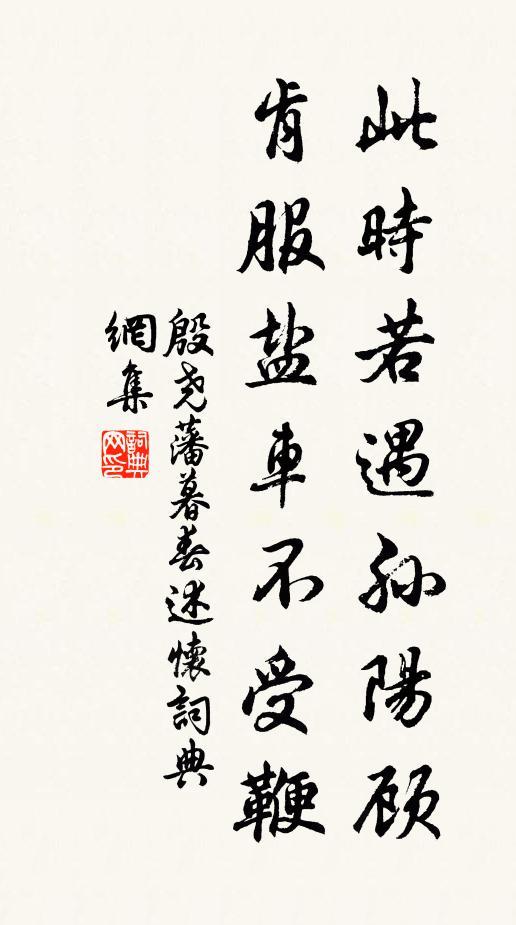 此時若遇孙陽顾
肯服盐車不受鞭
殷尧藩暮春述懷詞典
網集
詞典网印